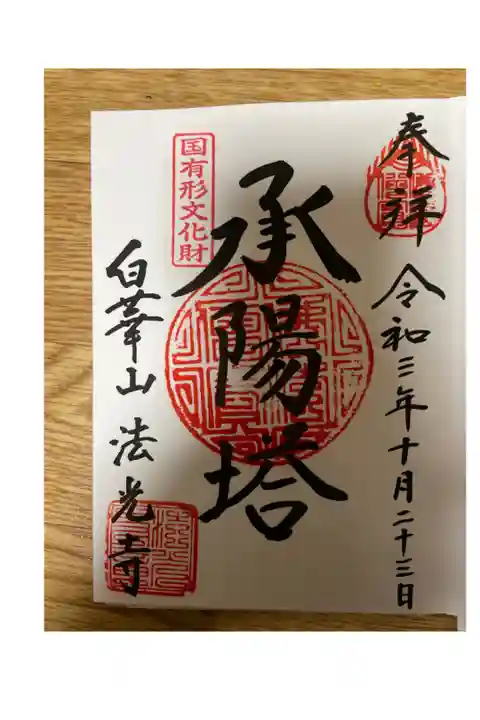 奉拝
令和三年十月二十三日
承陽塔
国有形文化財
白華山 法光寺